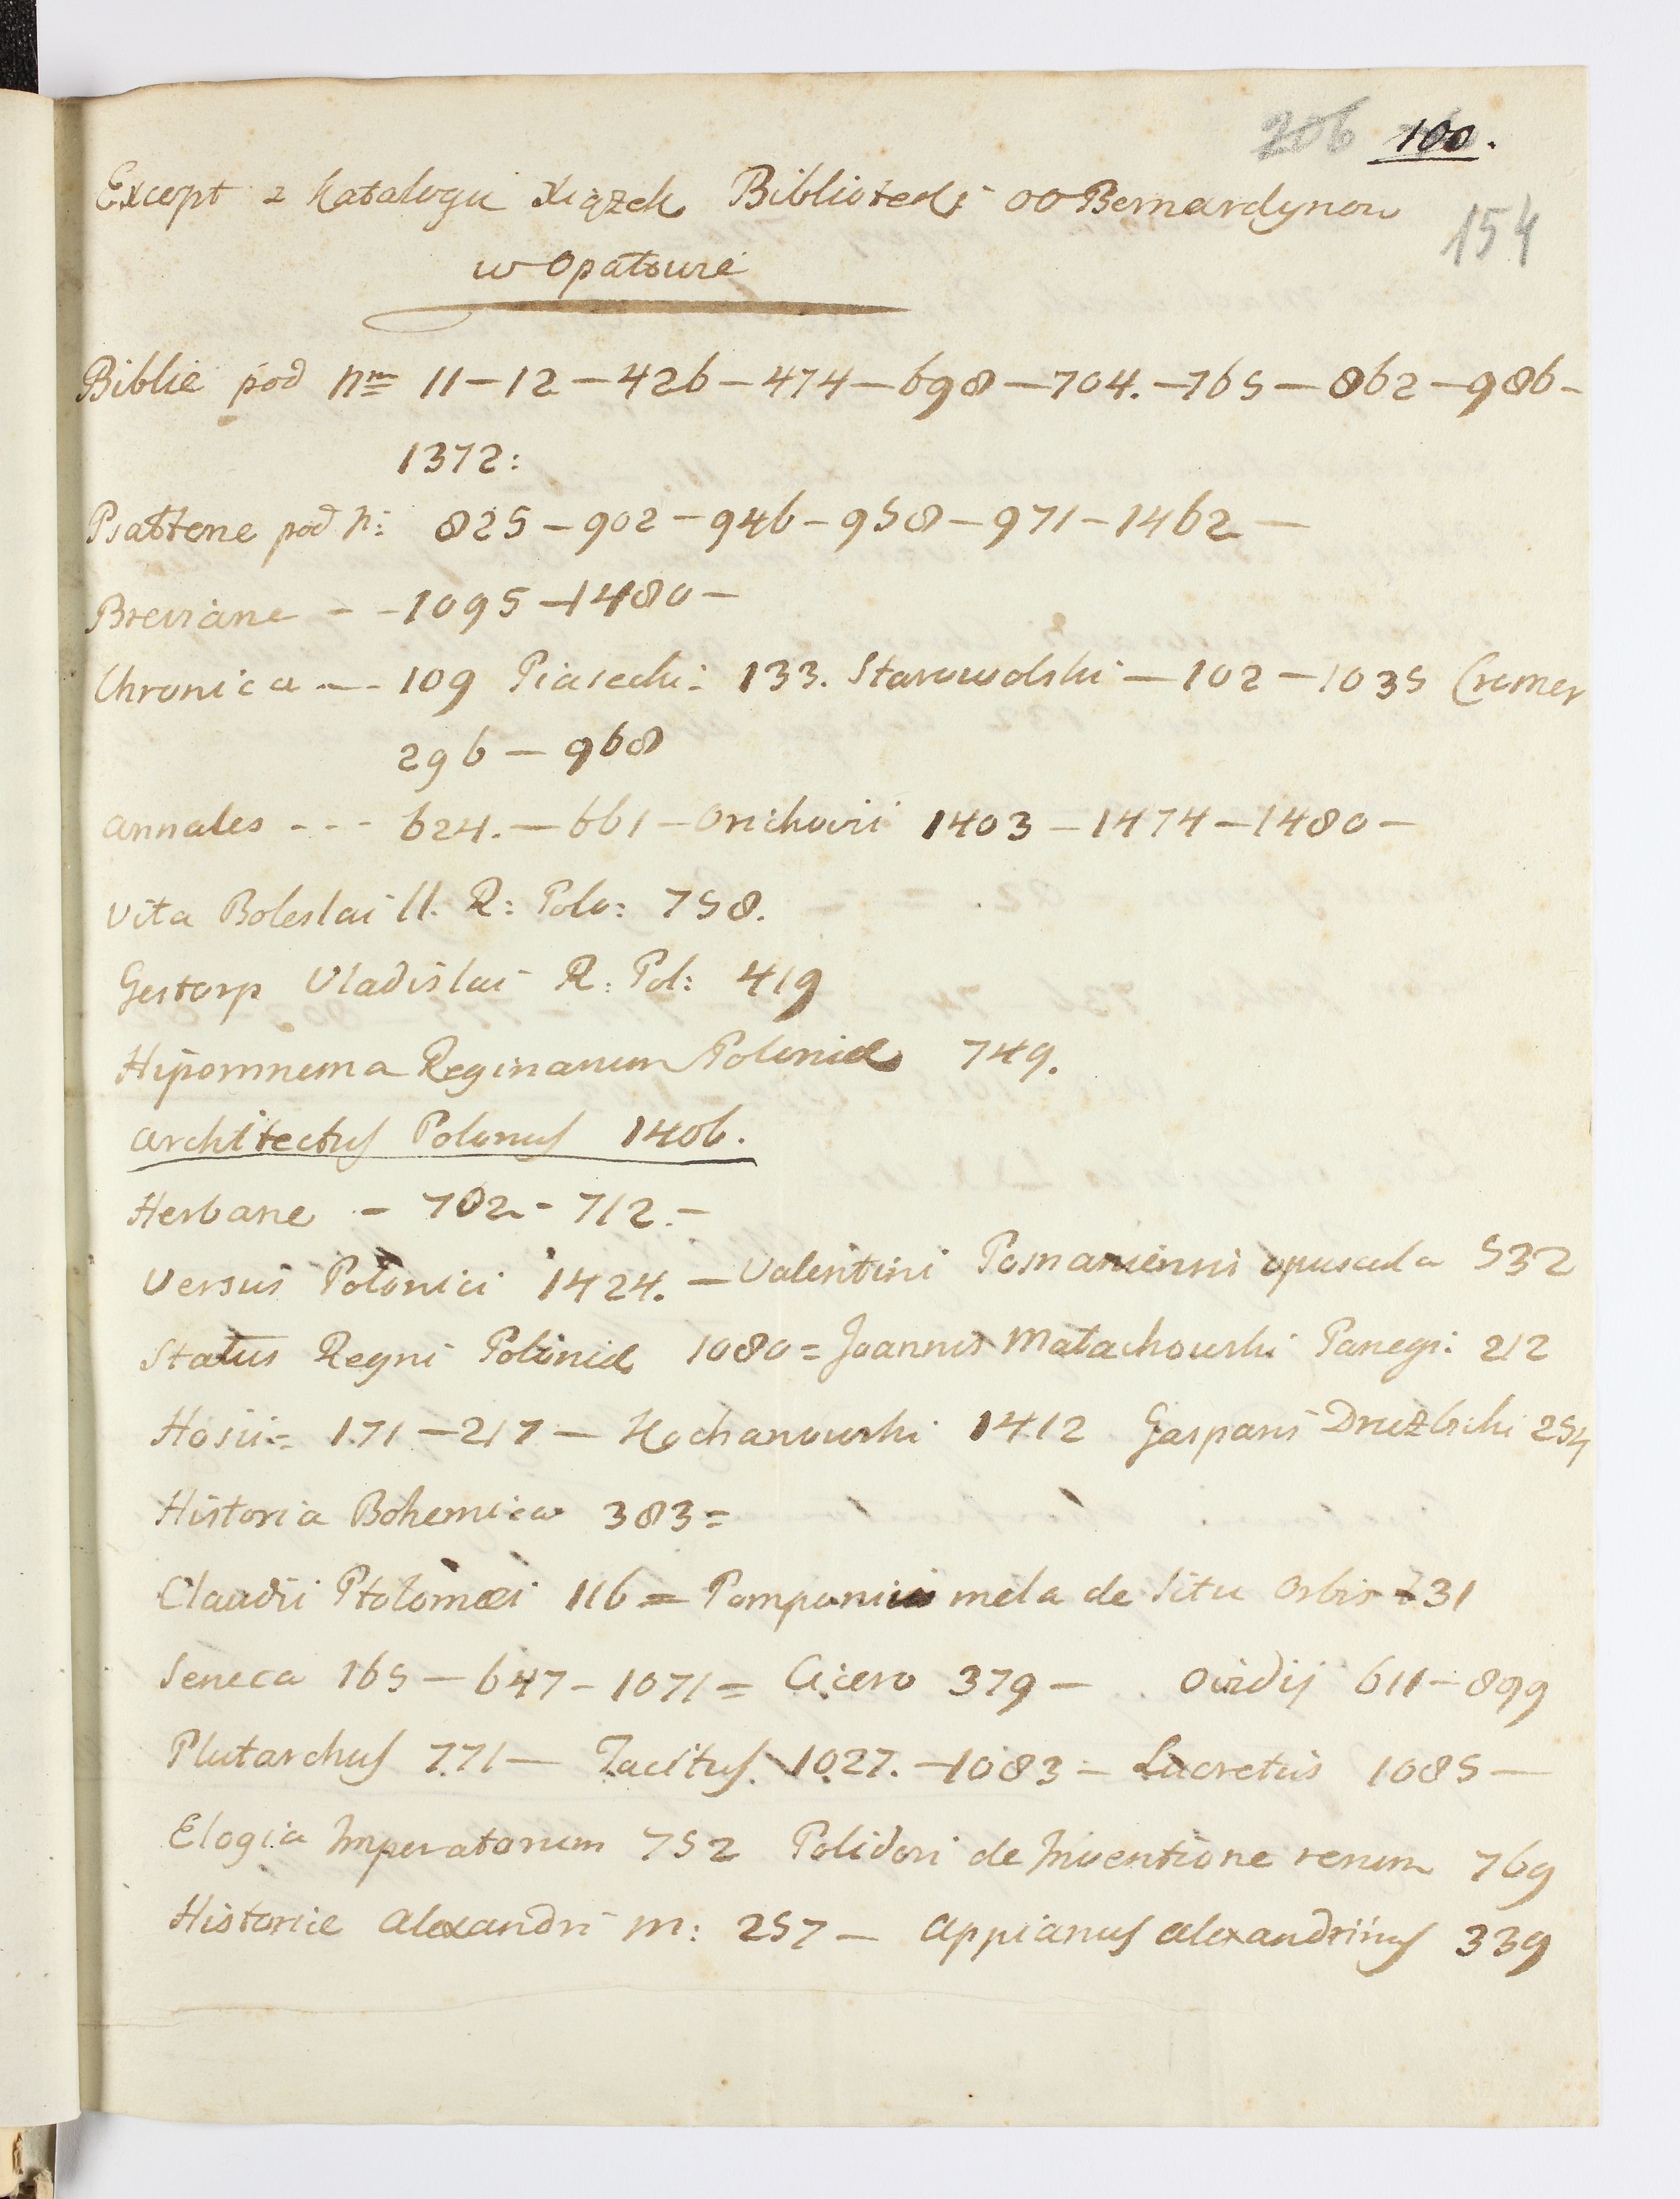 206 100.
154
Except z Katalogu Xiążek Biblioteki OO Bernardynow
w Opatowie
Biblie pod Nrm 11 – 12 – 426 – 474 – 698 – 704. – 765 – 862 – 986 –
1372:
Psałterze pod N: 825 – 902 – 946 – 958 – 971 – 1462 –
Breviarze – – 1095 – 1480 –
Chronica – – 109 Piasecki: 133. Starowolski – 102 – 1035 Cromer
296 – 968
Annales - - - 624. – 661 – Orichovii 1403 – 1474 – 1480 –
Vita Boleslai II. R: Polo: 758.
Gestorp Vladislai R: Pol: 419
Hipomnema Reginarum Poloniæ 749.
Architectus Polonus 1406.
Herbarze – 702 – 712. –
Versus Polonici 1424. – Valentini Posnaniensis opuscula 532
Status Regni Poloniæ 1080 = Joannis Małachowski Panegi: 212
Hosii = 171 – 217 – Kochanowski 1412 Gasparis Drużbicki 254
Historia Bohemica 383 =
Claudii Ptolomæi 116 = Pomponius mela de Situ Orbis 731
Seneca 165 – 647 – 1071 = Cicero 379 – Ovidij 611 – 899
Plutarchus 771 – Tacitus. 1027. – 1083 – Lucretius 1085 –
Elogia Imperatorum 752 Polidori de Inventione rerum 769
Historie Alexandri M: 257 – Appianus Alexandrinus 339